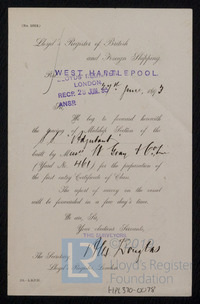 Lloyd's Register of British
and Foreign Shipping,
WEST HARTLEPOOL
LONDON
RECD 28 JUN 93
ANSR
27th June, 1893
We beg to forward herewith
the Midship Section of the
built by Messrs W. Gray & Co Ld
(Yard No. 461) for the preparation
of the first entry Certificate of Class.
The report of entry on the vessel
will be forwarded in a few day's time.
We are, Sir,
Your obedient Servants,
THE SURVEYORS
The Secretary
Lloyd's Register London
HPL510-0078
Lloyd's Register
Foundation